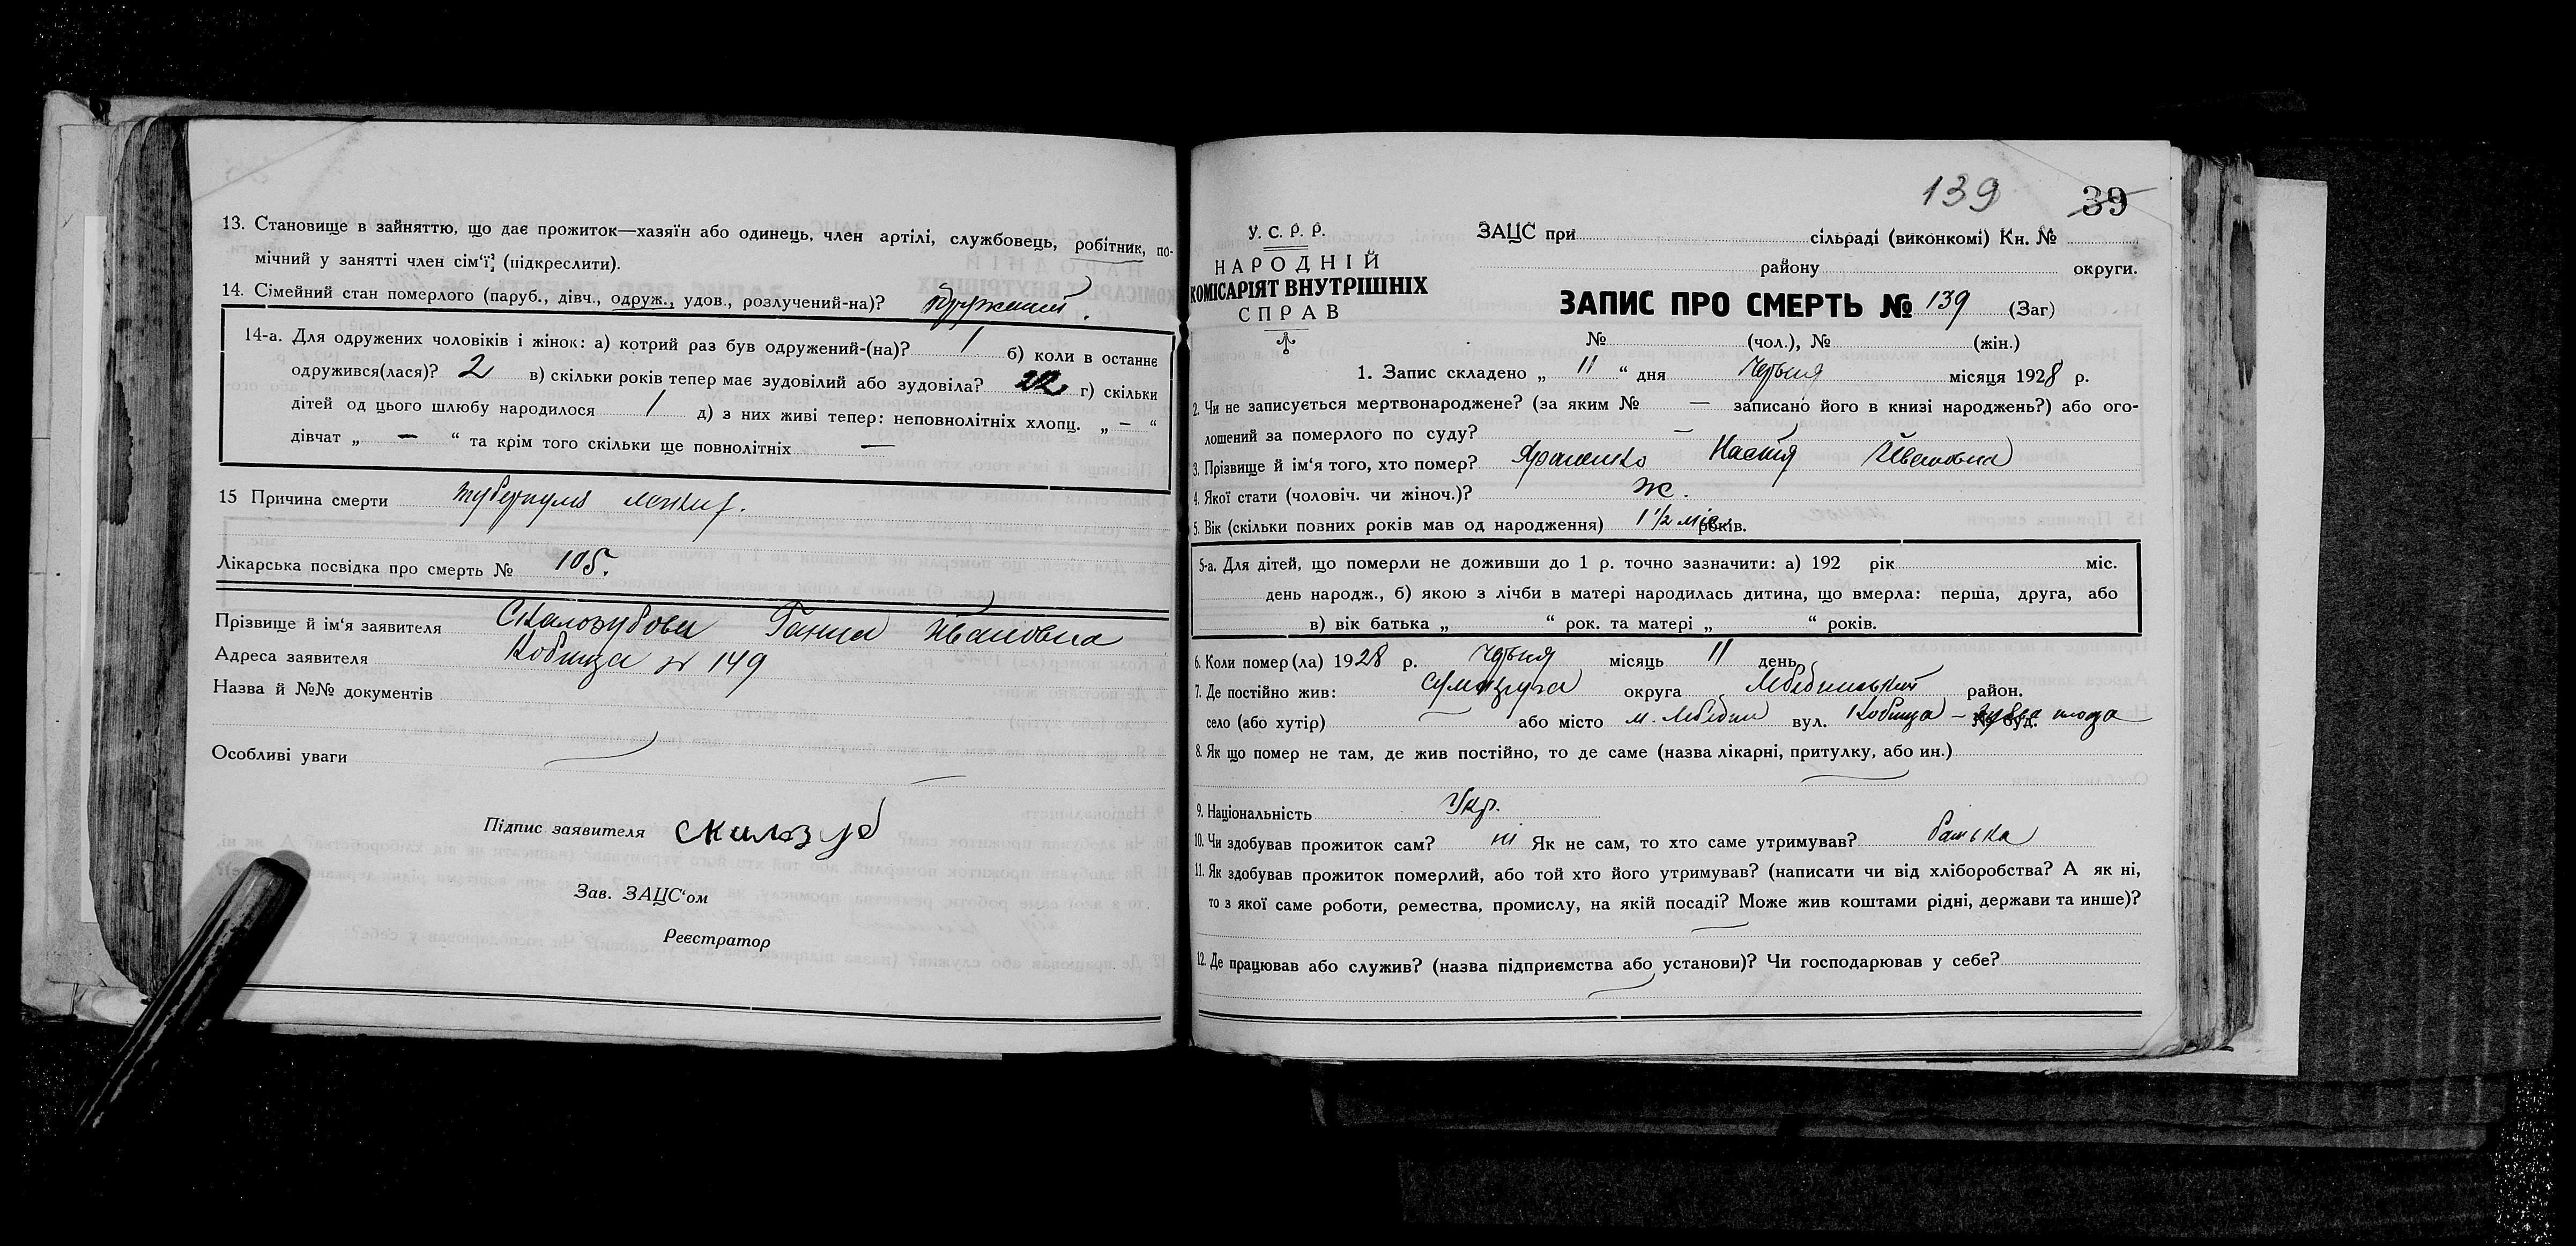 13. Становище в зайняттю, що дає прожиток—хазяїн або одинець, член артілі, службовець, робітник, по-
мічний у занятті член сім'ї? (підкреслити).
14. Сімейний стан померлого (паруб., дівч., одруж., удов., розлучений-на)? Одружений.
14-а. Для одружених чоловіків і жінок: а) котрий раз був одружений-(на)? 1 б) коли в останнє
одружився(лася)? 2 в) скільки років тепер має зудовілий або зудовіла? 22 г) скільки
дітей од цього шлюбу народилося 1 д) з них живі тепер: неповнолітніх хлопц. „ — “
дівчат „ — “ та крім того скільки ще повнолітніх —
15 Причина смерти туберкульоз
Лікарська посвідка про смерть № 105.
Прізвище й ім'я заявителя Скалозубова Ганна Івановна
Адреса заявителя Кобища № 149
Назва й №№ документів
Особливі уваги
Підпис заявителя Скалозуб
Зав. ЗАЦС'ом
Реєстратор
139 39
У. С. Р. Р.
НАРОДНІЙ
КОМІСАРІЯТ ВНУТРІШНІХ
СПРАВ
ЗАЦС при сільраді (виконкомі) Кн. №
району округи.
ЗАПИС ПРО СМЕРТЬ № 139 (Заг)
№ (чол.), № (жін.)
1. Запис складено „ 11 “ дня Червня місяця 1928 р.
2. Чи не записується мертвонароджене? (за яким № — записано його в книзі народжень?) або ого-
лошений за померлого по суду? —
3. Прізвище й ім'я того, хто помер? Настя Івановна
4. Якої стати (чоловіч. чи жіноч.)? ж.
5. Вік (скільки повних років мав од народження) 1 1/2 міс. років.
5-а. Для дітей, що померли не доживши до 1 р. точно зазначити: а) 192 рік міс.
день народж., б) якою з лічби в матері народилась дитина, що вмерла: перша, друга, або
в) вік батька „ “ рок. та матері „ “ років.
6. Коли помер(ла) 1928 р. Червня місяць 11 день
7. Де постійно жив: Сумщина округа Лебединський район.
село (або хутір) — або місто м. Лебедин вул. Кобища — № буд.
8. Як що помер не там, де жив постійно, то де саме (назва лікарні, притулку, або ин.)
9. Національність Укр.
10. Чи здобував прожиток сам? ні Як не сам, то хто саме утримував? батька
11. Як здобував прожиток померлий, або той хто його утримував? (написати чи від хліборобства? А як ні,
то з якої саме роботи, ремества, промислу, на якій посаді? Може жив коштами рідні, держави та инше)?
12. Де працював або служив? (назва підприємства або установи)? Чи господарював у себе?